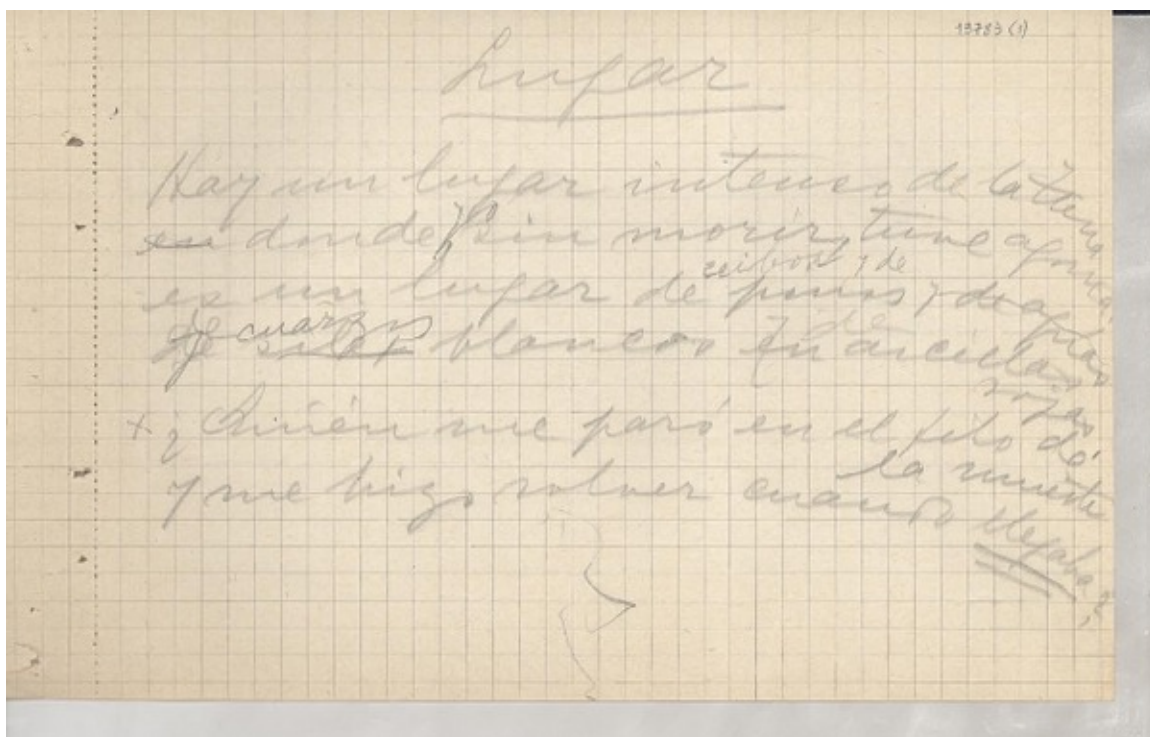 13783 (1)
Lugar
Hay un lugar intenso de la Tierra
en donde, sin morir, tuve agonía
es un lugar de pinos y de
ceibos y de
de cuarzos blancos y de arcillas
rojas
+ ¿Quién me paró en el filo de
la muerte
y me hizo volver cuando llegaba?